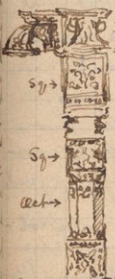 Sq
Sq
Oct